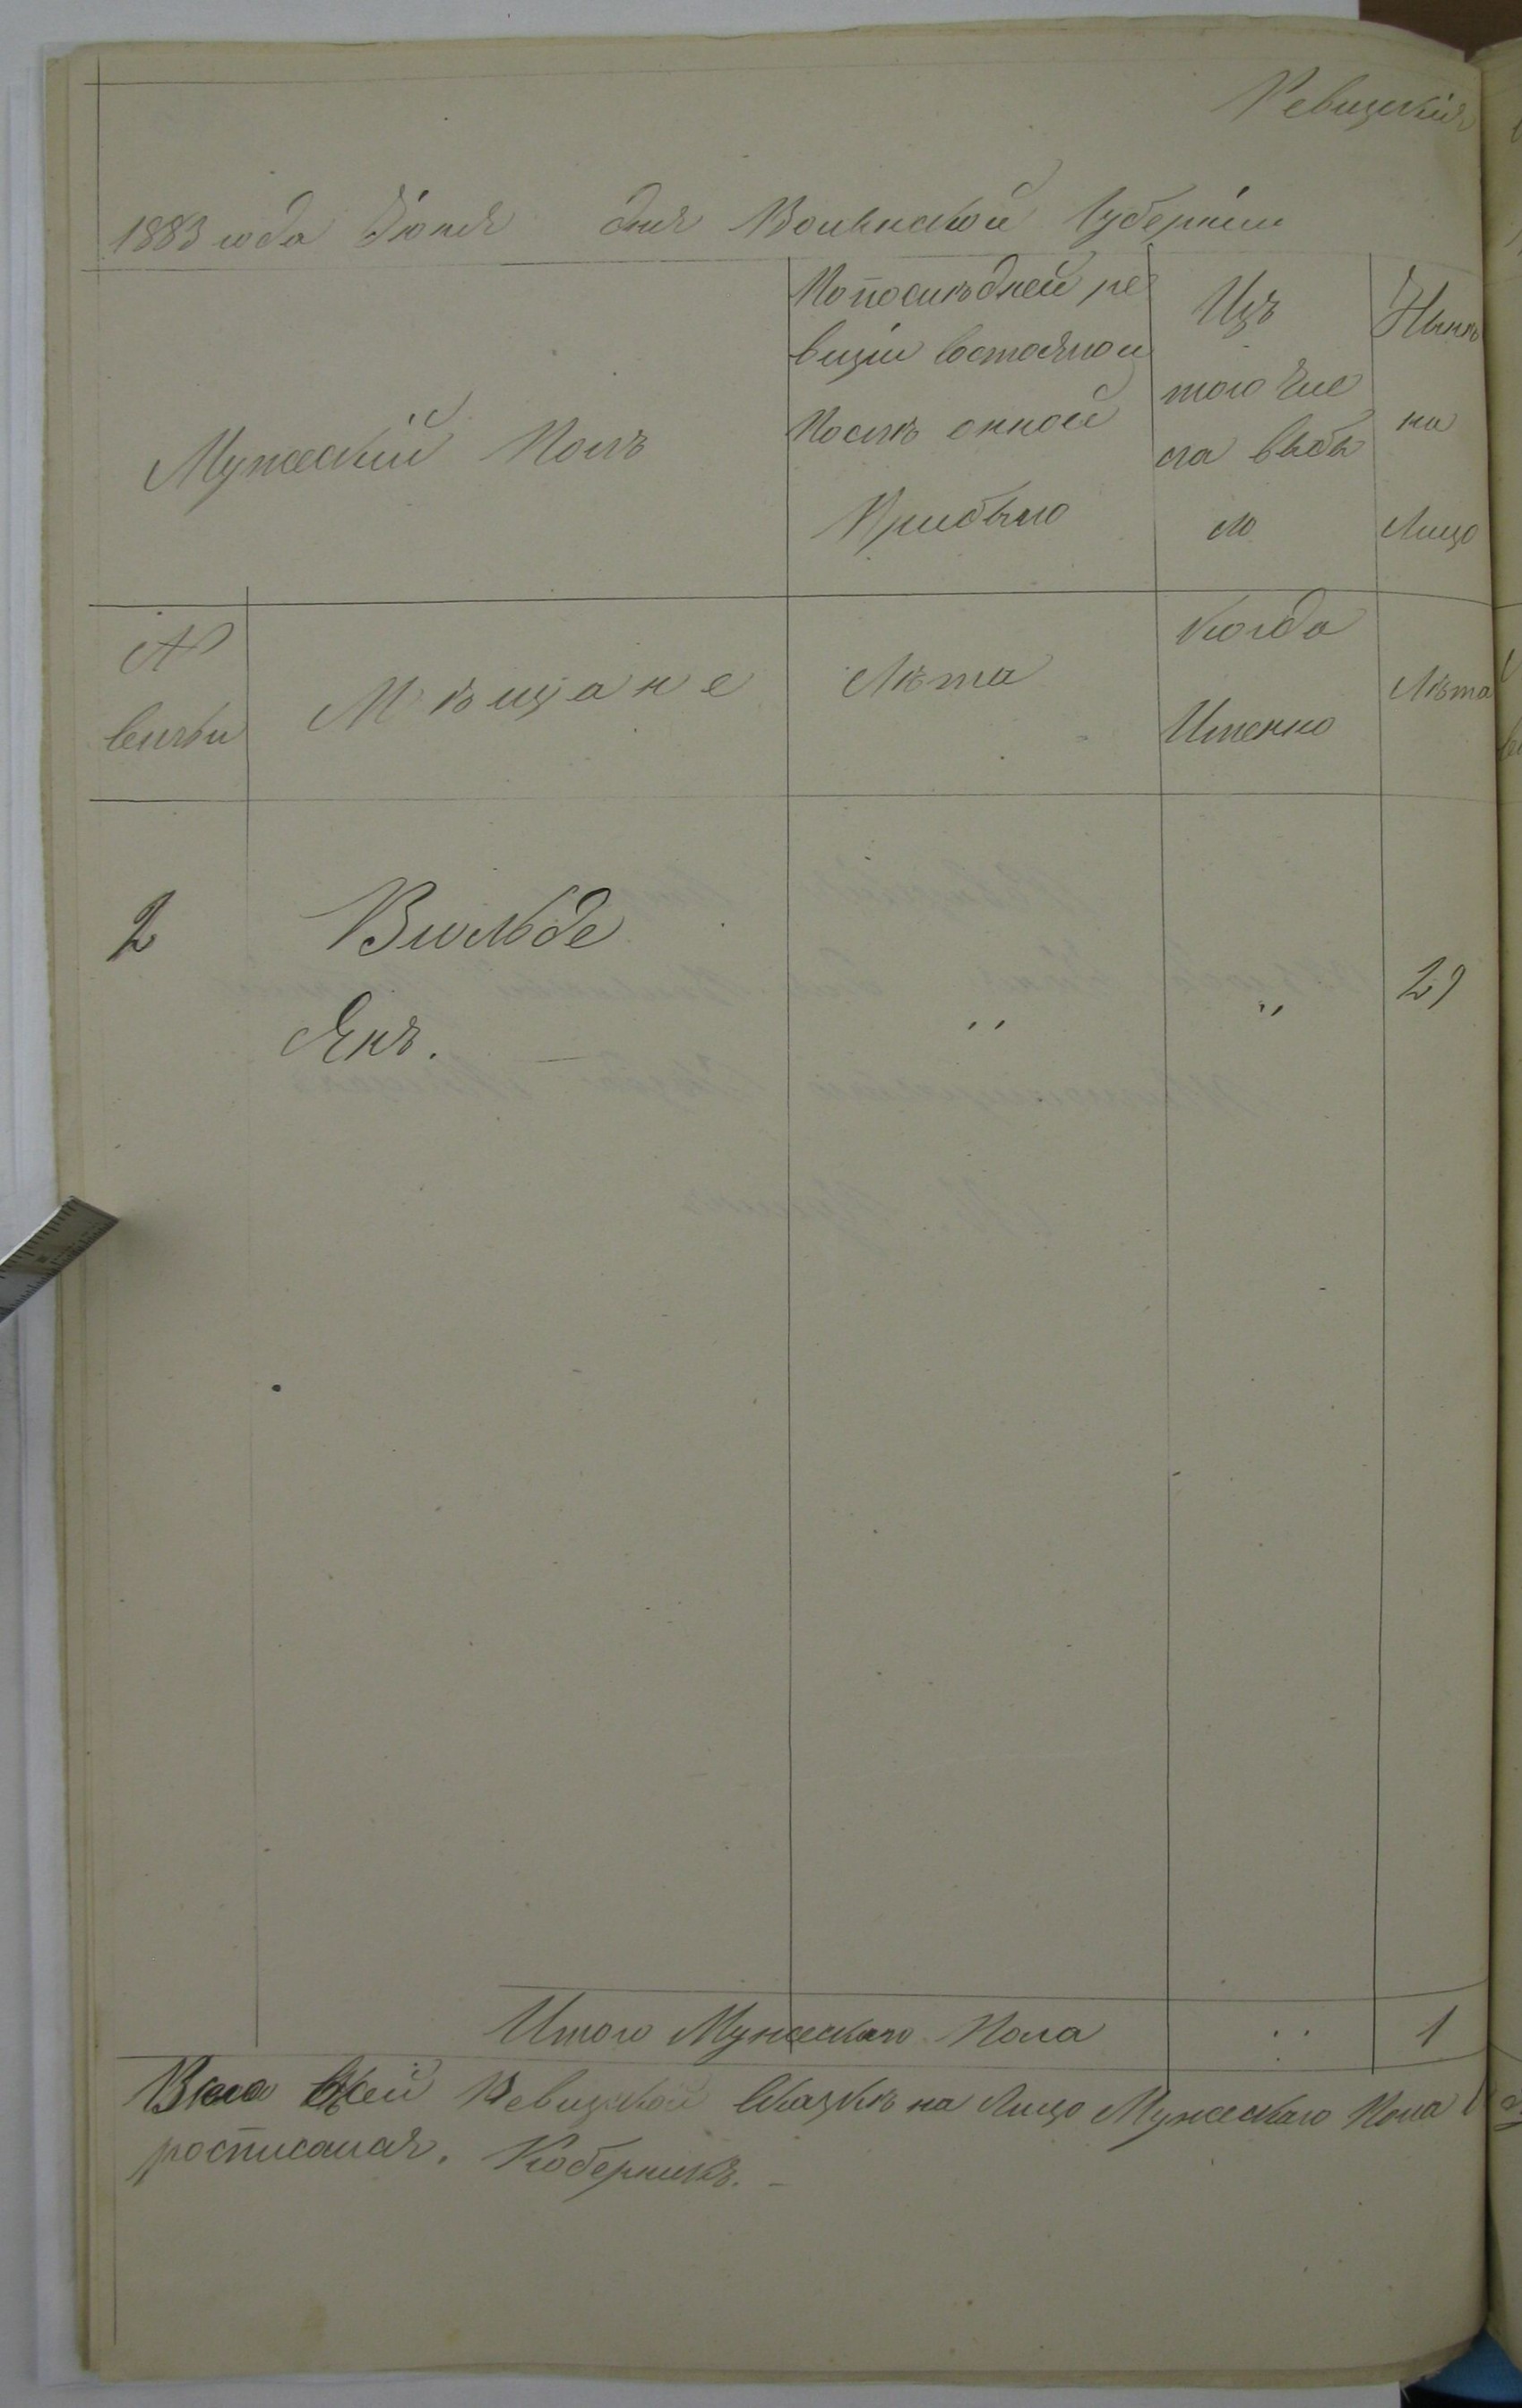 Ревизская
1883 года Іюня дня Волынской Губерніи
Мужескій Полъ
По послѣдней ре
визіи состояло и
Послѣ оной
Прибыло
Изъ
того чис
ла выбы
ло
Нынѣ
на
Лицо
№
семьи
Мѣщане
Лѣта
Когда
Именно
Лѣта
2
Вильде
Янъ.
„
„
29
Итого Мужескаго Пола
„
1
Ревизской Сказкѣ на Лицо Мужескаго Пола